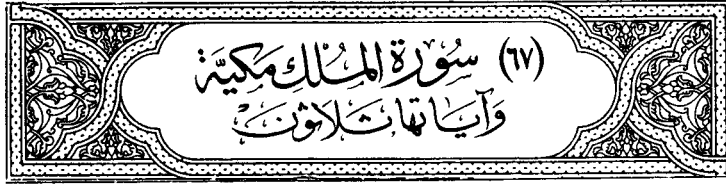 (٦٧) سُورَة المُلْك مَكيَّة
وَآيَاتهَا ثَلَاثُونَ